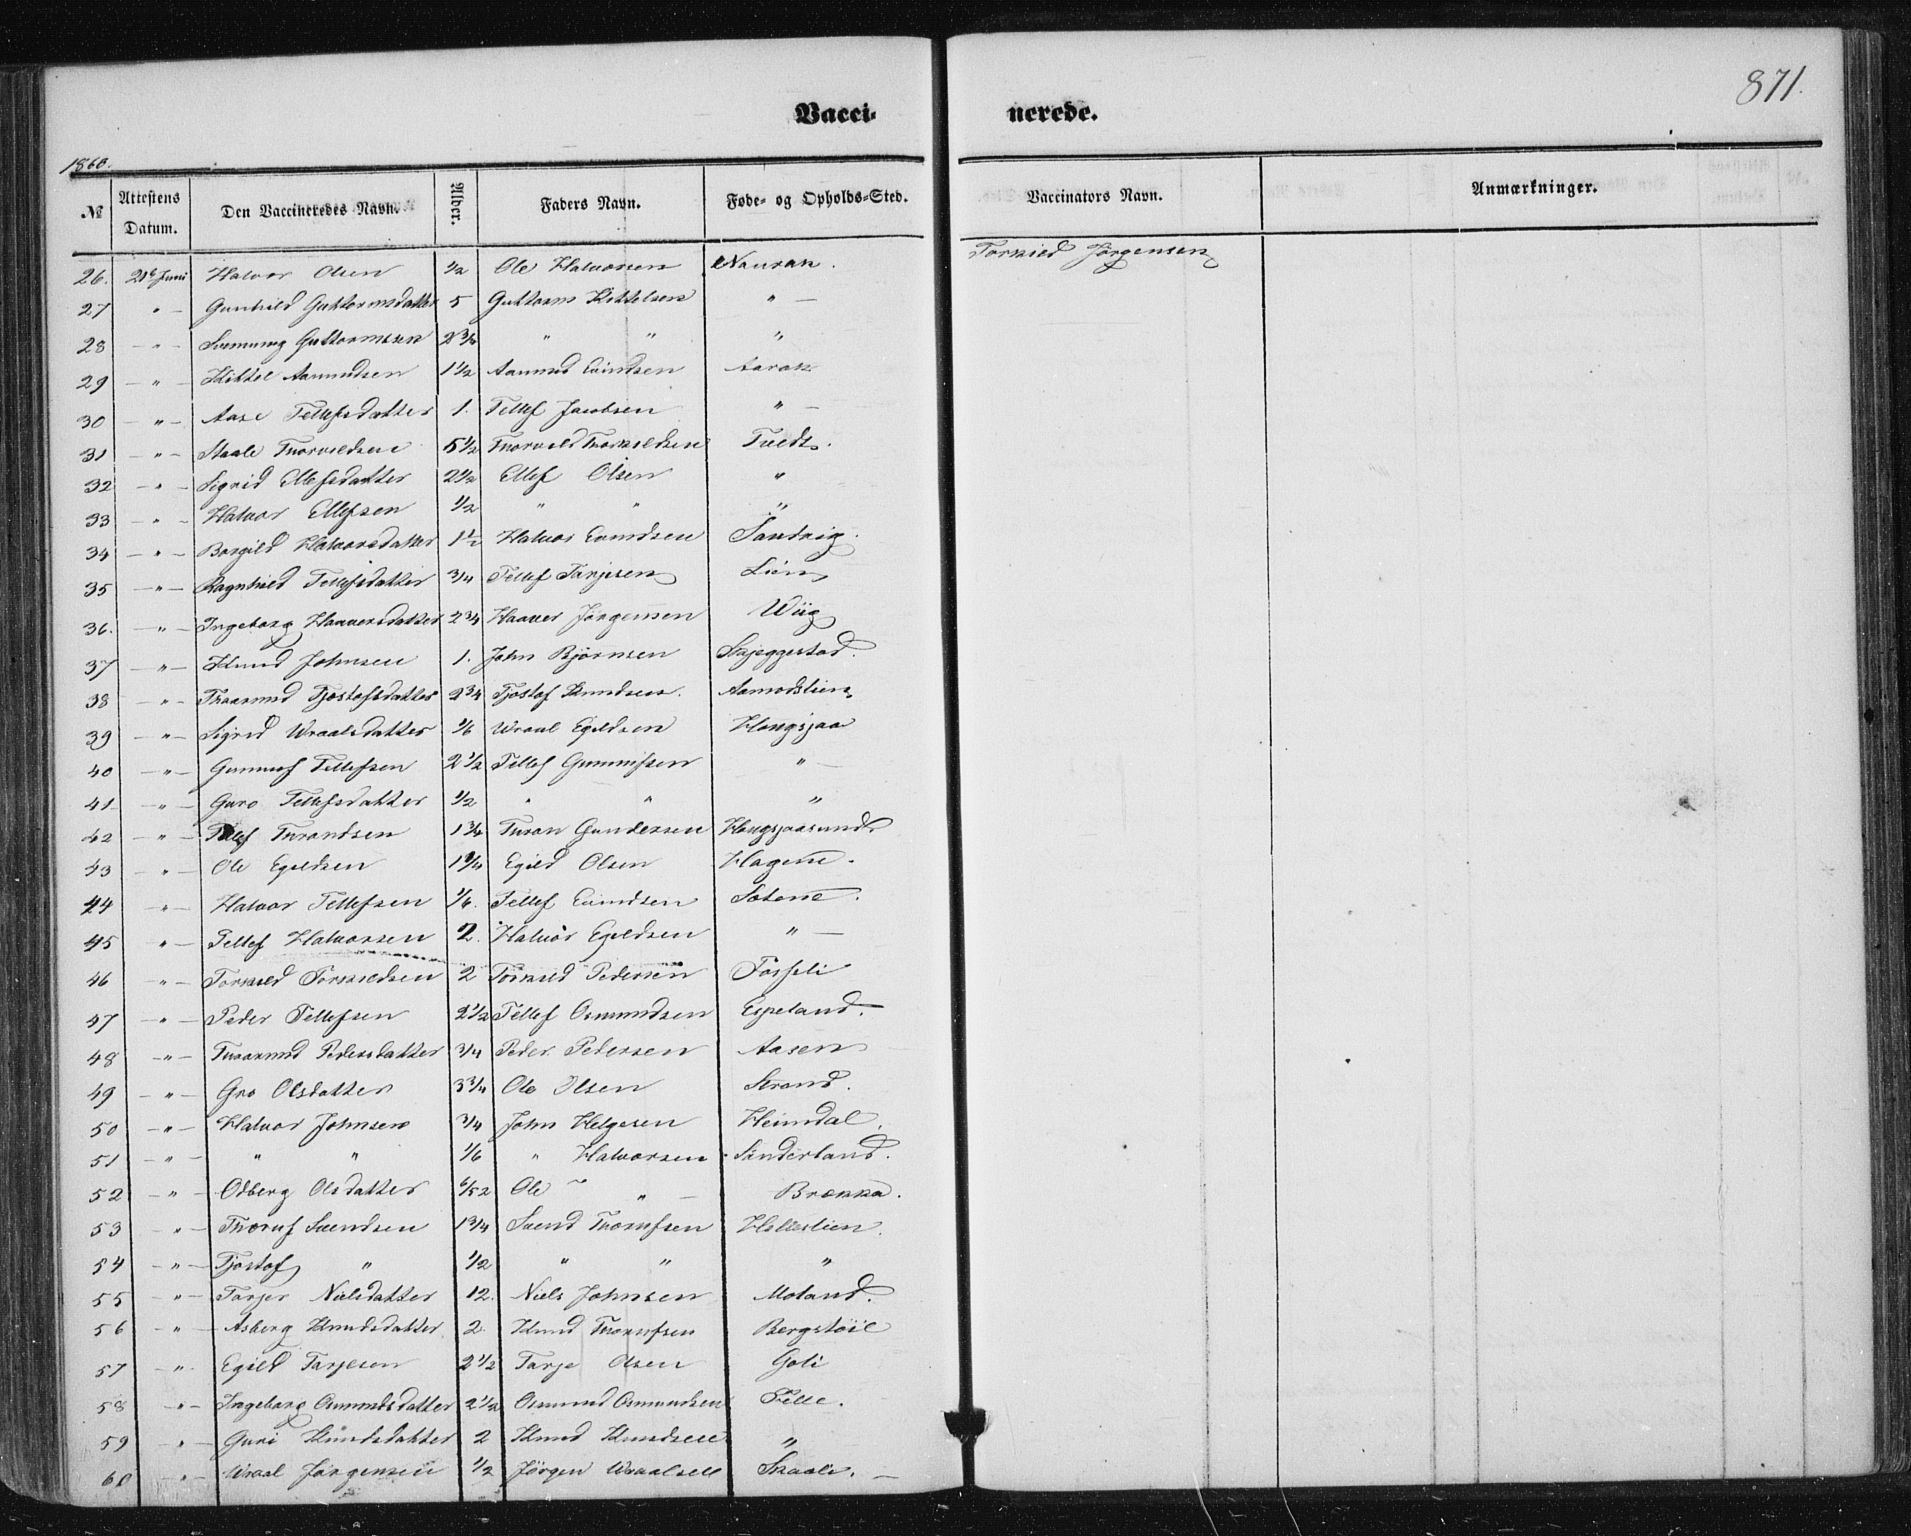 871.
Vacci- nerede.
1860.
№ Attestens Datum. Den Vaccineredes Navn. Alder. Faders Navn. Føde- og Opholds-Sted. Vaccinators Navn. Anmærkninger.
26. 21de Juni Halvor Olsen 1/2 Ole Halvorsen Naurak. Torkild Jørgensen
27 " - Gunhild Guttormsdatter 5 Guttorm Kittelsen " -
28 - " - Guttormsen 2 3/4 " " "
29 - " - Kittel Aamundsen 1 1/2 Aamund Evindsen Aarak
30 - " - Aase Tellefsdatter 1. Tellef Jacobsen " -
31 - " - Staale Thorvildsen 5 1/2 Thorvild Thorkildsen Tvedt.
32 - " - Sigrid Ellefsdatter 2 1/2 Ellef Olsen "
33 - " - Halvor Ellefsen 1/2 " " "
34 - " - Borgild Halvorsdatter 1 1/2 Halvor Evindsen Sandvig.
35 - " - Ragnhild Tellefsdatter 3/4 Tellef Tarjesen Lien
36. - " - Ingeborg Haaversdatter 2 3/4 Haaver Jørgensen Wiig
37 - " - Knud Johnsen 1. John Bjørnsen Skjeggestad.
38 - " - Thaarund Tjostofsdatter 2 3/4 Tjostof Knudsen. Aamodslien
39 - " - Sigrid Wraalsdatter 1/6 Wraal Egildsen Hougsjaa
40 - " - Gunnuf Tellefsen 2 1/2 Tellef Gunnufsen " -
41 - " - Guro Tellefsdatter 1/2 " " "
42 - " - Tellef Throndsen 1 3/4 Thron Gundersen Hougsjaasund.
43 - " - Ole Egildsen 1 1/4 Egild Olsen Hagene.
44 - " - Halvor Tellefsen 1/6. Tellef Evindsen Sotene.
45 " - Tellef Halvorsen 2. Halvor Egildsen " -
46 - " - Torkild Torkildsen 2 Torkild Pedersen Fosseli
47 - " - Peder Tellefsen 2 1/2 Tellef Osmundsen Espeland.
48 - " - Thaarund Pedersdatter 3/4 Peder Pedersen Aasen
49 - " - Gro Olsdatter 3 3/4 Ole Olsen Strand.
50 - " - Halvor Johnsen 3/4 John Helgesen Heimdal.
51 - " - " " 1/6 " Halvorsen Sønderland.
52 - " - Odberg Olsdatter 6/52 Ole " - Brækka.
53 " - Thoruf Svendsen 1 3/4 Svend Thorufsen Hellestien.
54 - " - Tjostof " 1/2 " " "
55 - " - Torjer Nielsdatter 12. Niels Johnsen Moland.
56 " - Asberg Knudsdatter 2. Knud Thorufsen Bergstøil
57 - " - Egild Tarjesen 2 1/2 Tarje Olsen Goli
58 - " - Ingeborg Osmundsdatter 2 1/2 Osmund Osmundsen Felle.
59 " - Guri Knudsdatter 2 Knud Knudsen "
60 " - Wraal Jørgensen 1/2 Jørgen Wraalsen Skaali. -